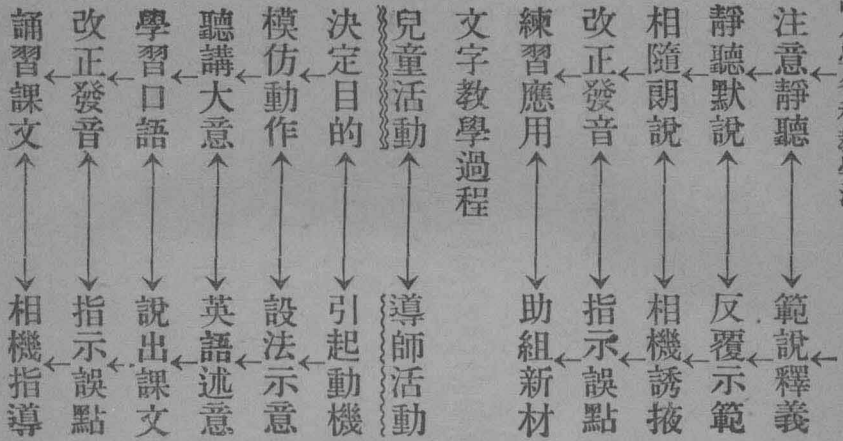 注意靜聽 ←→ 範說釋義
靜聽默說 ←→ 反覆示範
相隨朗說 ←→ 相機誘掖
改正發音 ←→ 指示誤點
練習應用 ←→ 助組新材
文字教學過程
兒童活動 ←→ 導師活動
決定目的 ←→ 引起動機
模仿動作 ←→ 設法示意
聽講大意 ←→ 英語述意
學習口語 ←→ 說出課文
改正發音 ←→ 指示誤點
誦習課文 ←→ 相機指導